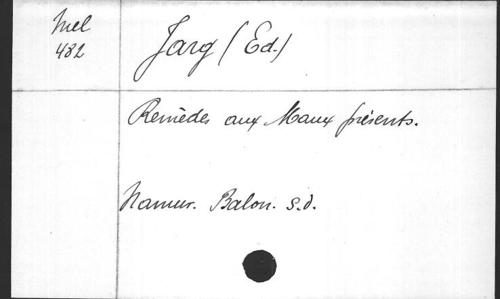 Mel
482
Jarg (Ed.)
Remèdes aux Maux présents.
Namur. Balon. S.d.